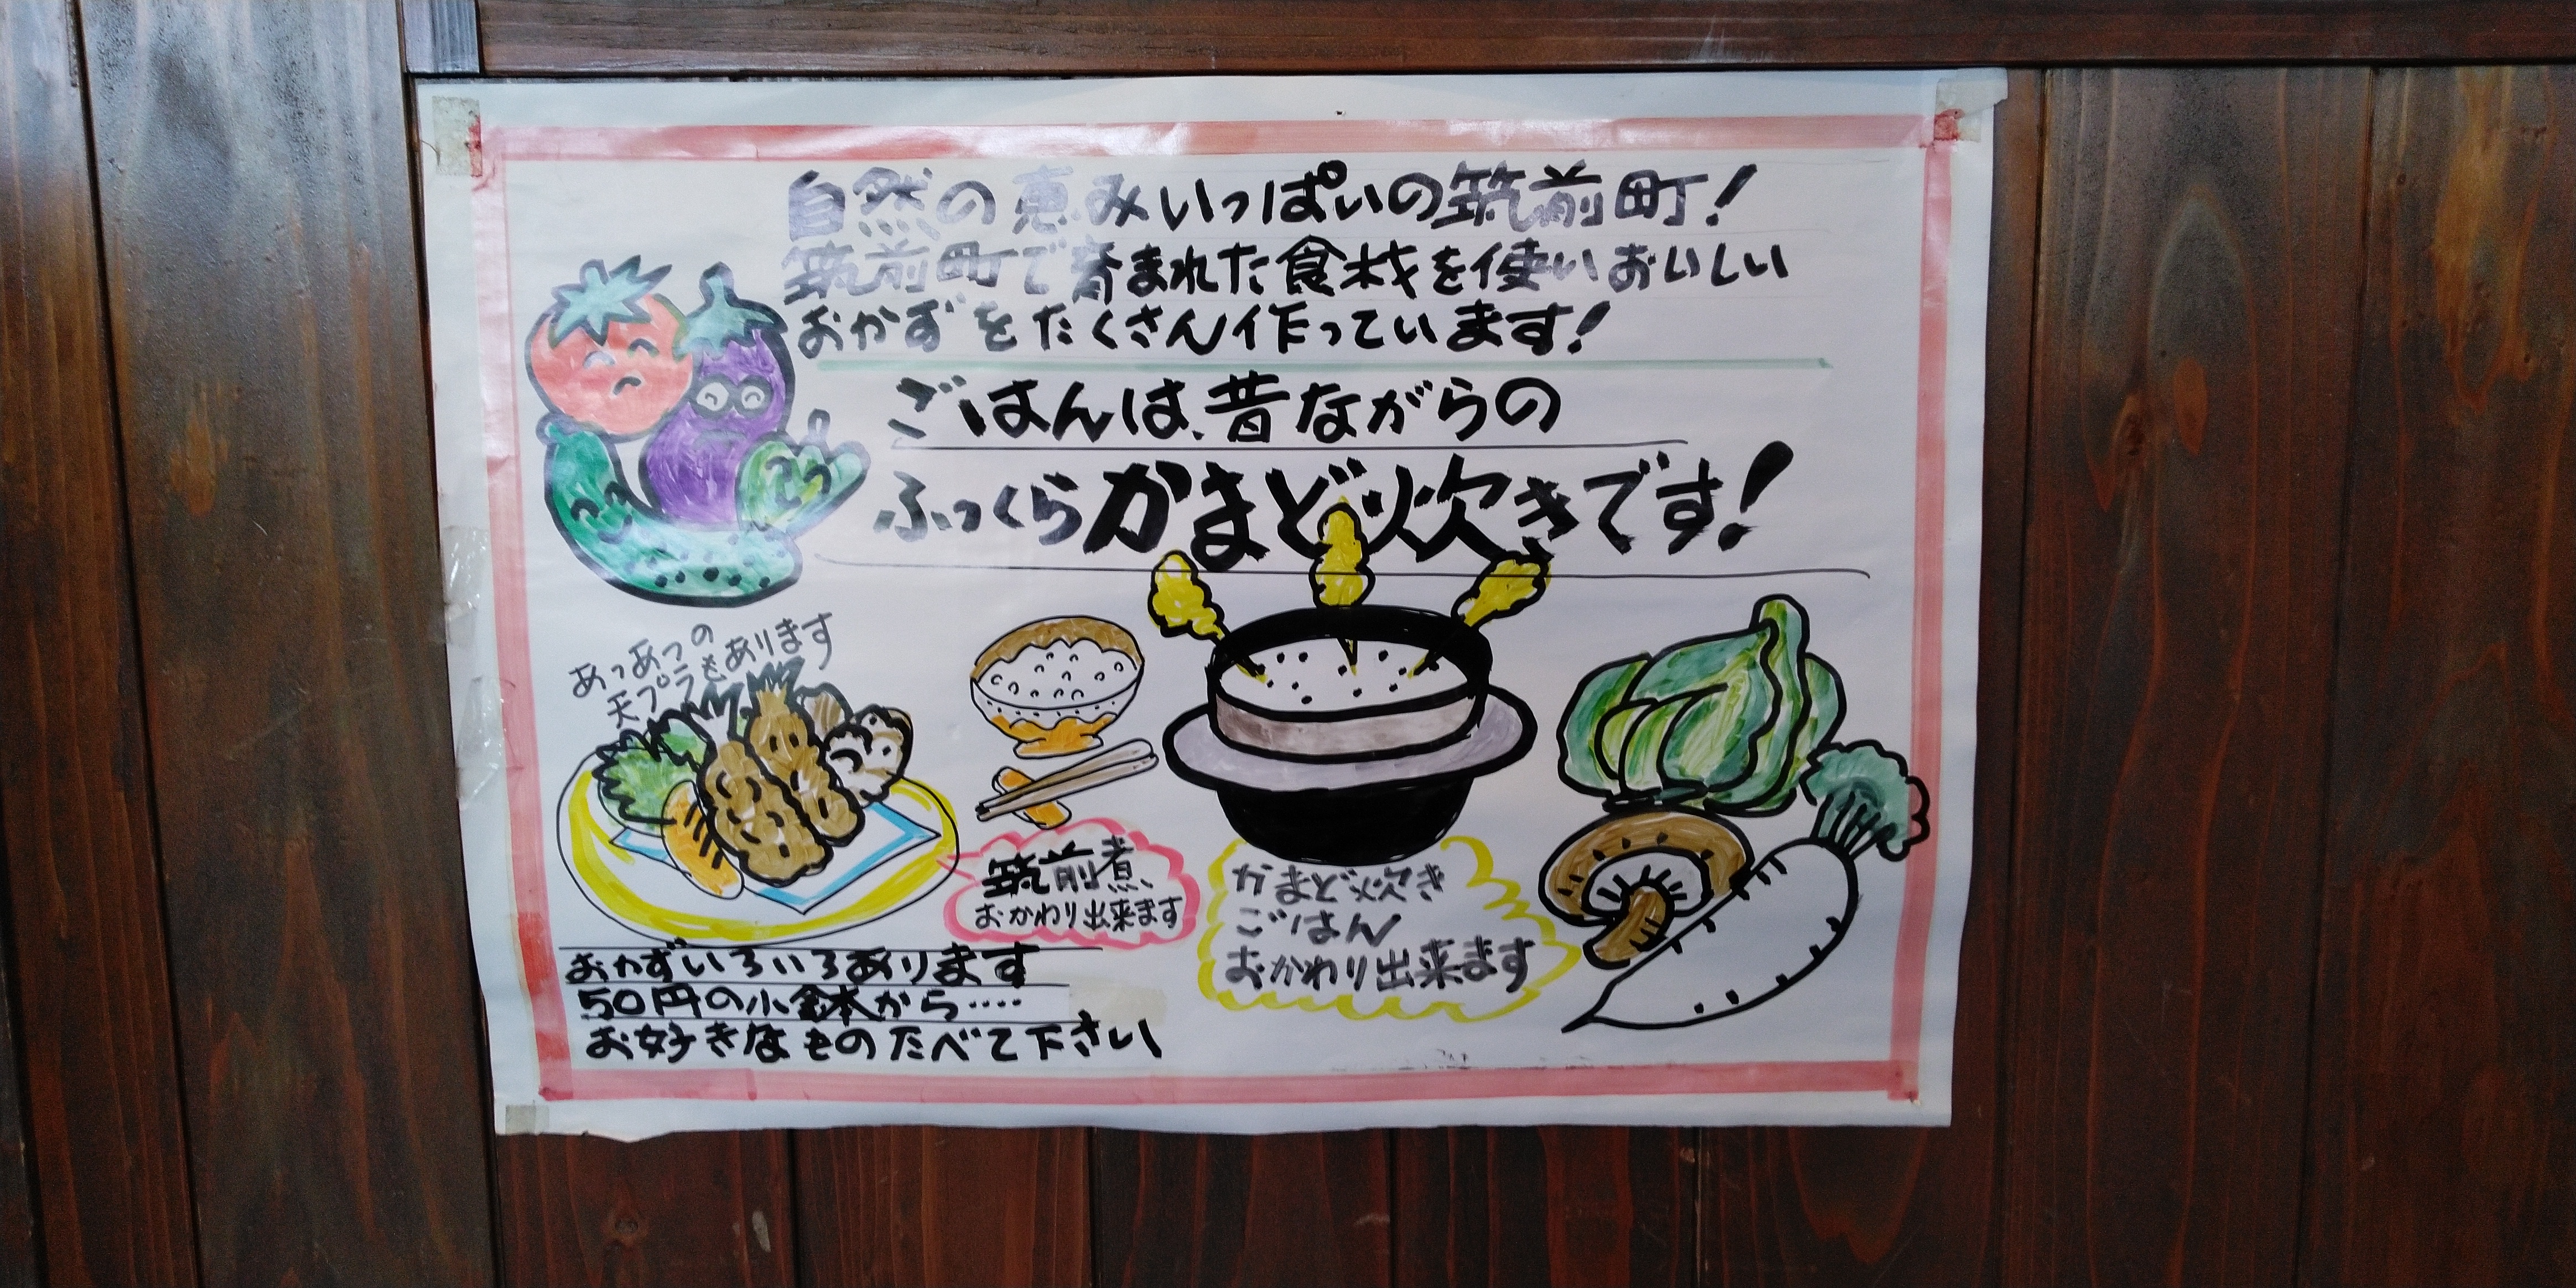 自然の恵みいっぱいの筑前町!
筑前町で育まれた食材を使いおいしい
おかずをたくさん作っています!
ごはんは、昔ながらの
ふっくらかまど炊きです!
あつあつの
天プラもあります
筑前煮
おかわり出来ます
かまど炊き
ごはん
おかわり出来ます
おかずいろいろあります
50円の小鉢から……
お好きなものたべて下さい